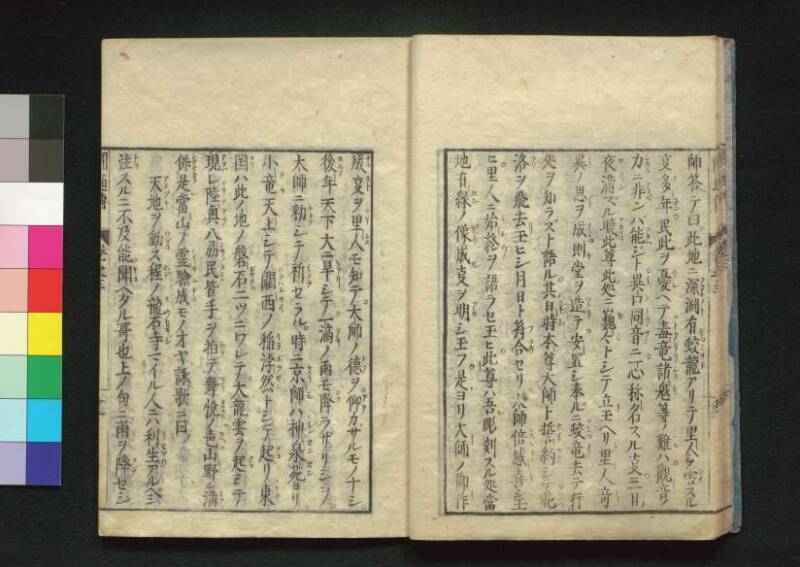 師答テ曰此地ニ深淵有蛟龍アリテ里人ヲ害スル
叓多年民此ヲ憂ヘテ毒竜諸鬼等ノ難ハ觀音ノ
力ニ非ンバ能シト異口同音ニ一心称名スル叓三日
夜満スル曉此尊此処ニ巍々トシテ立玉ヘリ里人竒
異ノ思ヲ成則堂ヲ造テ安置シ奉ルニ蛟竜去テ行
処ヲ知ラズト語ル其日時本尊大師ト誓約シテ此
洛ヲ飛去玉ヒシ月日ト符合セリ大師倍感喜シ玉
ヒ里人ニ始終ヲ語ラセ玉ヒ此尊ハ吾彫刻スル処當
地有縁ノ像成叓ヲ明シ玉フ是ヨリ大師ノ御作
成叓ヲ里人モ知テ大師ノ德ヲ仰カザルモノナシ
後年天下大ニ旱シテ一滴ノ雨モ降ラザリシヲ
大師ニ勅シテ祈セラル時ニ京師ハ神泉苑ヨリ
小竜天上シテ關西ノ稲浡然トシテ起リ東
国ハ此ノ地ノ磐石二ツニワレテ大龍雲ヲ起シテ
現レ陸奥八刕民皆手ヲ拍テ舞悅ノ色山野ニ満
併是當山ノ霊驗成モノヲヤ詠歌ニ曰
天地ヲ動ス程ノ龍石寺マイル人ニハ利生アルベシ
注スルニ不及能聞ヘタル哥也上ノ句ニ雨ヲ降セシ